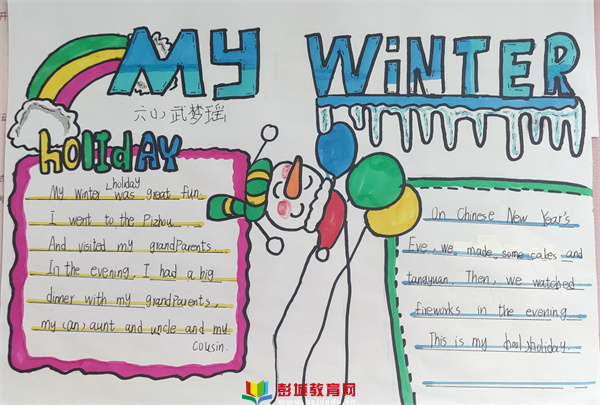 My WiNTER
六(1) 武梦瑶
holIdAY
My winter holiday was great fun.
I went to the Pizhou
And visited my grandparents
In the evening, I had a big
dinner with my grandparents,
my aunt and uncle and my
cousin.
On Chinese New Year's
Eve, we made some cakes and
tangyuan Then, we watched
fireworks in the evening
This is my holiday.
彭城教育网